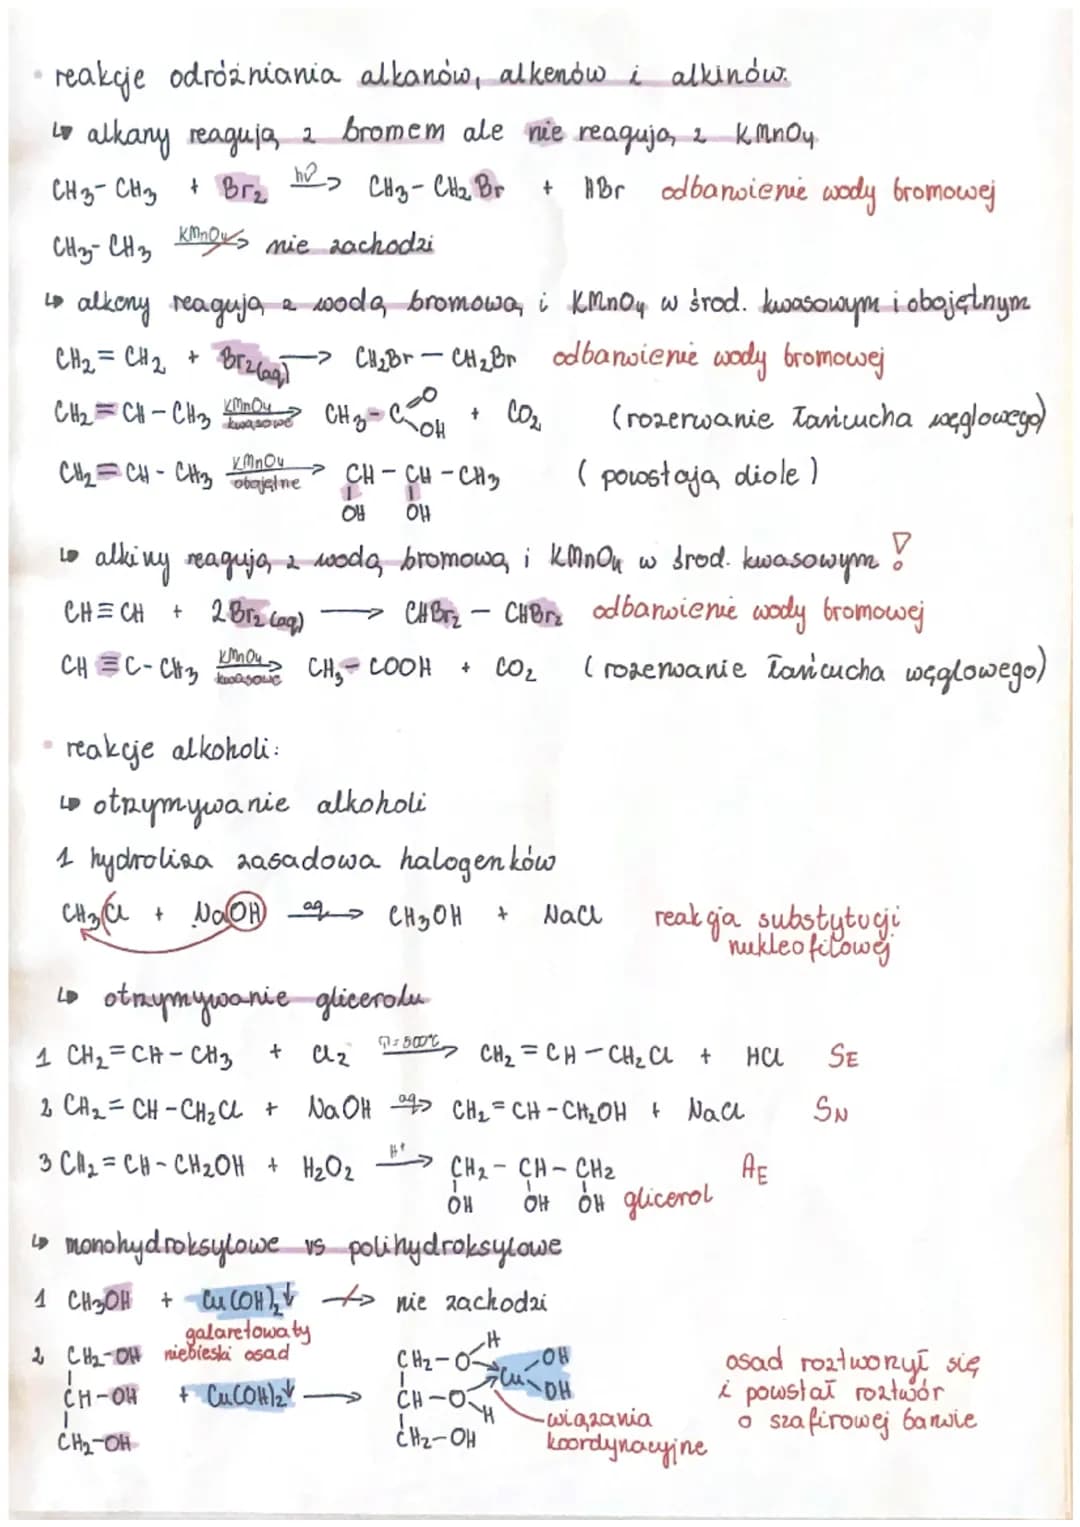 • reakcje odróżniania alkanów, alkenów i alkinów.
↳ alkany reagują z bromem ale nie reagują z KMnO₄
CH₃-CH₃ + Br₂ hν→ CH₃-CH₂Br + HBr odbarwienie wody bromowej
CH₃-CH₃ KMnO₄→ nie zachodzi
↳ alkeny reagują z wodą bromową i KMnO₄ w środ. kwasowym i obojętnym
CH₂=CH₂ + Br₂(aq) → CH₂Br-CH₂Br odbarwienie wody bromowej
CH₂=CH-CH₃ KMnO₄ kwasowe→ CH₃-C=O OH + CO₂ (rozerwanie łańcucha węglowego)
CH₂=CH-CH₃ KMnO₄ obojętne→ CH-CH-CH₃ (powstają diole)
OH OH
↳ alkiny reagują z wodą bromową i KMnO₄ w środ. kwasowym !
CH≡CH + 2Br₂(aq) → CHBr₂-CHBr₂ odbarwienie wody bromowej
CH≡C-CH₃ KMnO₄ kwasowe→ CH₃-COOH + CO₂ (rozerwanie łańcucha węglowego)
• reakcje alkoholi:
↳ otrzymywanie alkoholi
1 hydroliza zasadowa halogenków
CH₃Cl + NaOH aq→ CH₃OH + NaCl reakcja substytucji
nukleofilowej
↳ otrzymywanie glicerolu
1 CH₂=CH-CH₃ + Cl₂ T=500°C→ CH₂=CH-CH₂Cl + HCl SE
2 CH₂=CH-CH₂Cl + NaOH aq→ CH₂=CH-CH₂OH + NaCl SN
3 CH₂=CH-CH₂OH + H₂O₂ H⁺→ CH₂-CH-CH₂ AE
OH OH OH glicerol
↳ monohydroksylowe vs polihydroksylowe
1 CH₃OH + Cu(OH)₂↓ ↛ nie zachodzi
galaretowaty
niebieski osad
2 CH₂-OH CH₂-O-H Cu OH osad roztworzył się
CH-OH + Cu(OH)₂↓ → CH-O-H OH i powstał roztwór
wiązania o szafirowej barwie
CH₂-OH CH₂-OH koordynacyjne